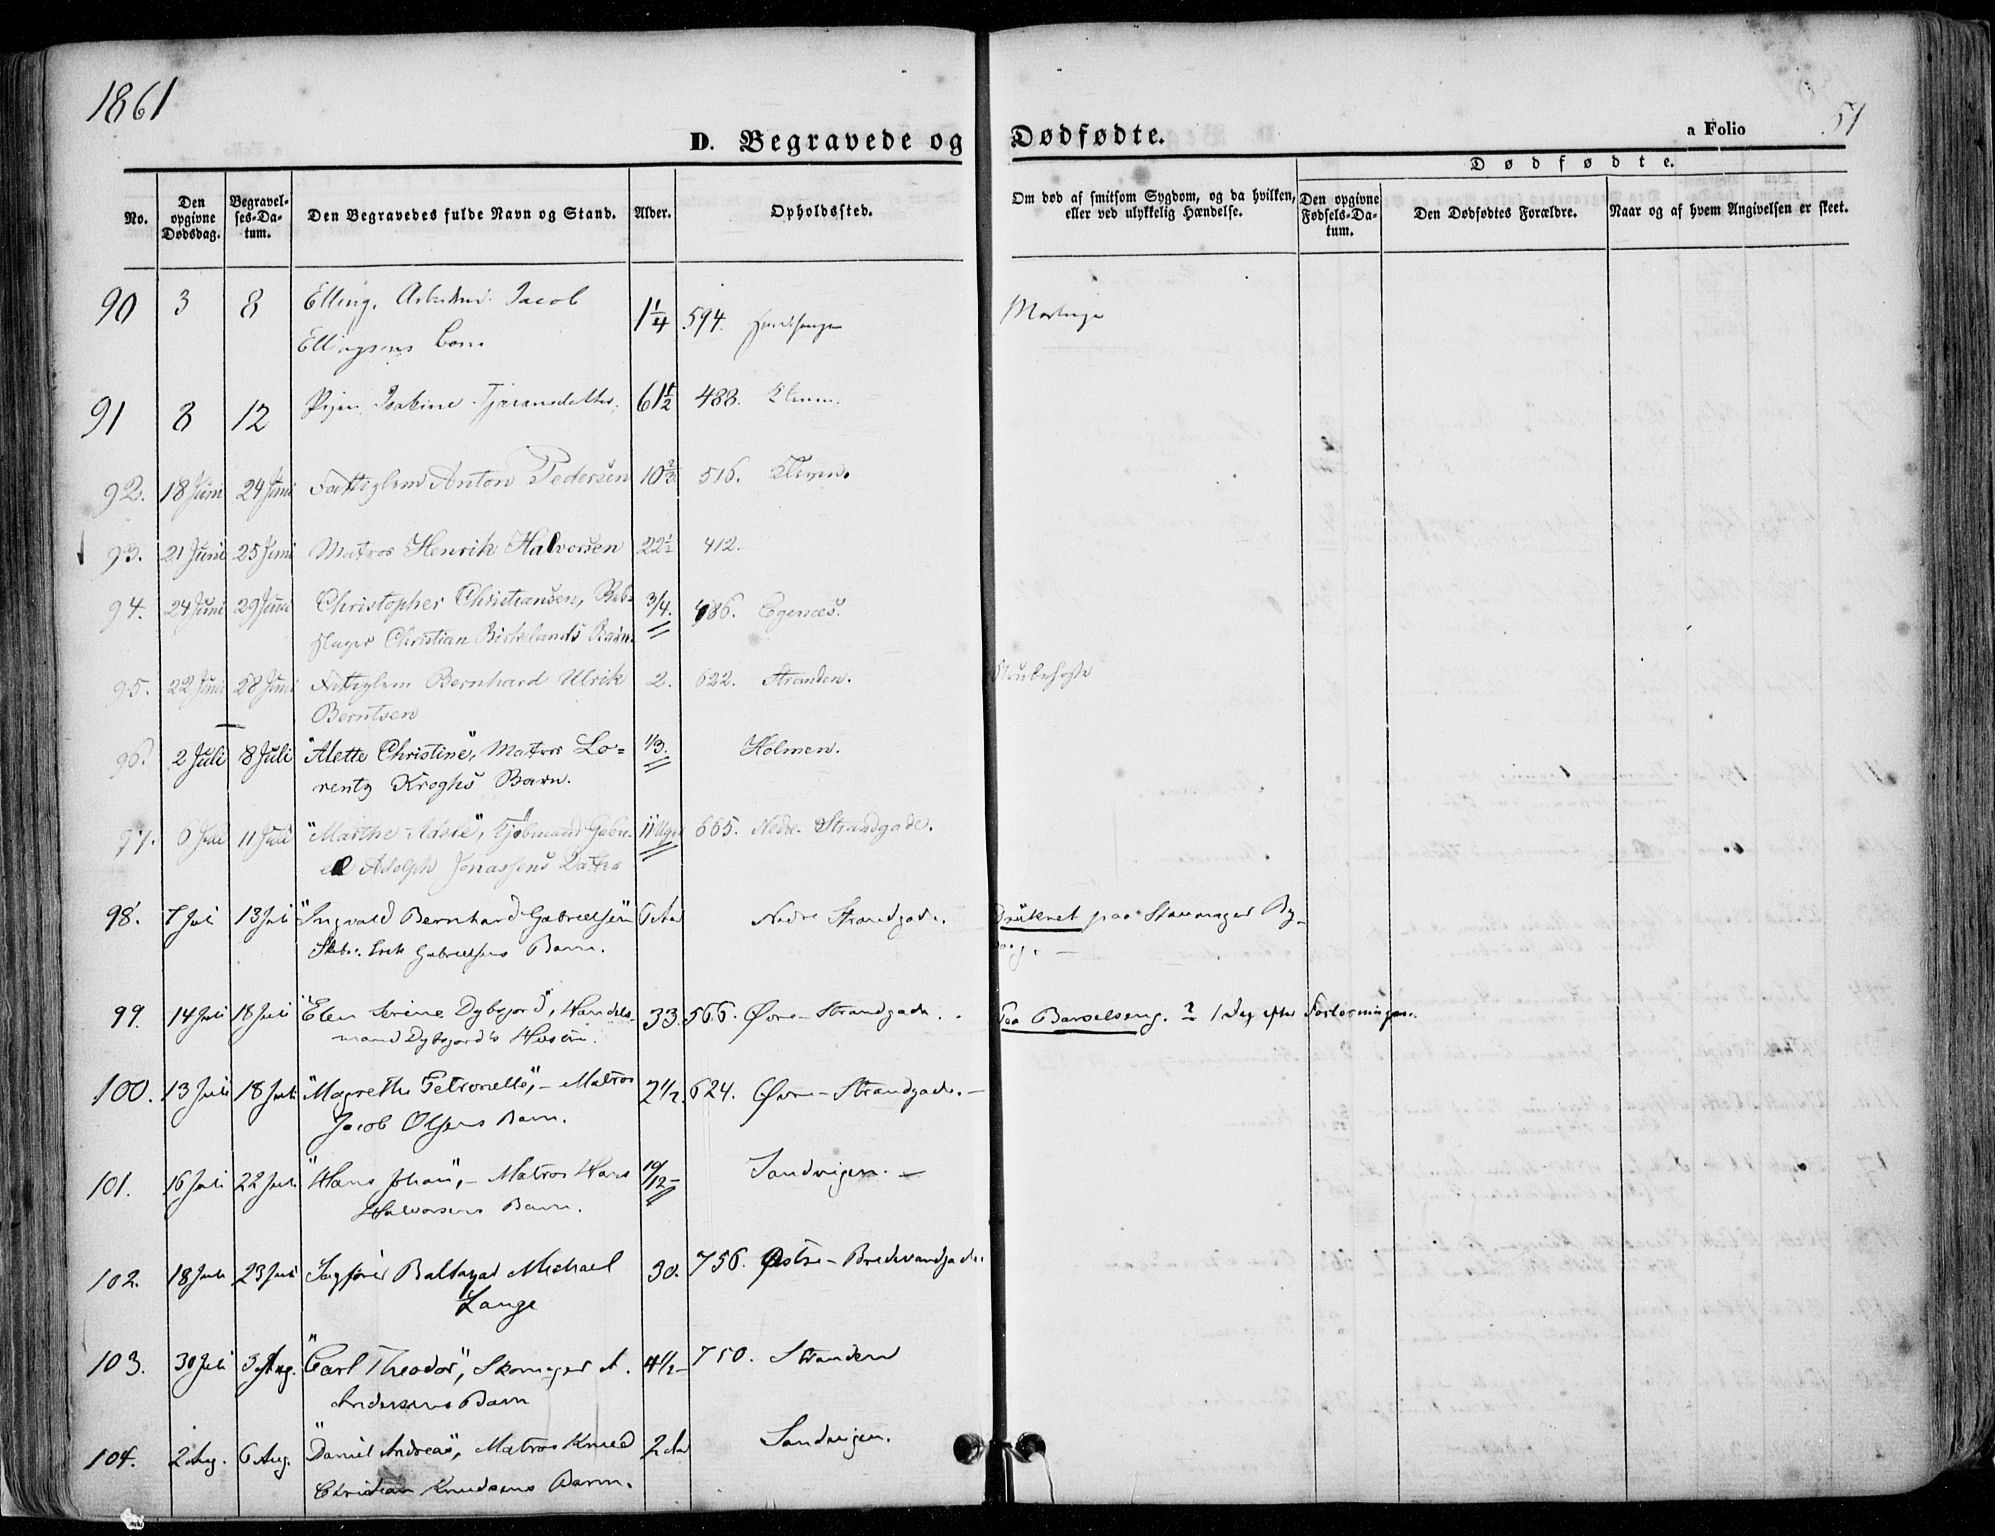 1861
51
D. Begravede og Dødfødte.
a Folio
Dødfødte.
No.
Den opgivne Dødsdag.
Begravelses-Datum.
Den Begravedes fulde Navn og Stand.
Alder.
Opholdssted.
Om død af smitsom Sygdom, og da hvilken, eller ved ulykkelig Hændelse.
Den opgivne Fødsels-Datum.
Den Dødfødtes Forældre.
Naar og af hvem Angivelsen er skeet.
90 3 8 Elling, Jacob 1 1/4 594.
Ellingsens Barn
91 8 12 Pigen 61 1/2 488.
92. 18 Juni 24 Juni Fattiglem Anton Pedersen 10 2/3 516.
93. 21 Juni 25 Juni Matros Henrik Halvorsen 22 1/2 412.
94. 24 Juni 29 Juni Christopher Christiansen, 3/4. 486. Egenæs.
Christian Birkelands Barn.
95. 22 Juni 28 Juni Fattiglem Bernhard Ulrik 2. 622. Stranden. Strubehoste
Berntsen
96. 2 Juli 8 Juli "Alette Christine", Matros Lo= 1/3. Holmen.
rentz Kroghs Barn.
97. 6 Juli 11 Juli "Marthe Adsie", Gabri- 11 Uger 665. Nedre Strandgade.
el Adolph Jonassens Datter
98. 7 Juli 13 Juli "Ingvald Bernhard Gabrielsen 6 Aar Nedre Strandgade. Druknet paa Stavanger By-
Erik Gabrielsens Barn. vaag. –
99. 14 Juli 18 Juli Elen Serine Dybfjord, Handels 33. 566. Øvre-Strandgade. Paa Barselseng. ? 1 Dag efter Forløsningen.
mand Dybfjords Hustru.
100. 13 Juli 18 Juli "Magrethe Petronelle", – Matros 2 1/2. 624. Øvre-Strandgade. –
Jacob Olsens Barn.
101. 16 Juli 22 Juli "Hans Johan", – Matros Hans 10/12 – Sandvigen. –
Halvorsens Barn.
102. 18 Juli 23 Juli Baltazar Michael 30. 756. Østre-Bredevandgade.
Lange
103. 30 Juli 3 Aug. "Carl Theodor", Skomager A. 4 1/2 – 750. Stranden
Andersens Barn
104. 2 Aug. 6 Aug. "Daniel Andreas", Matros Knud 2 Aar Sandvigen.
Christian Knudsens Barn.